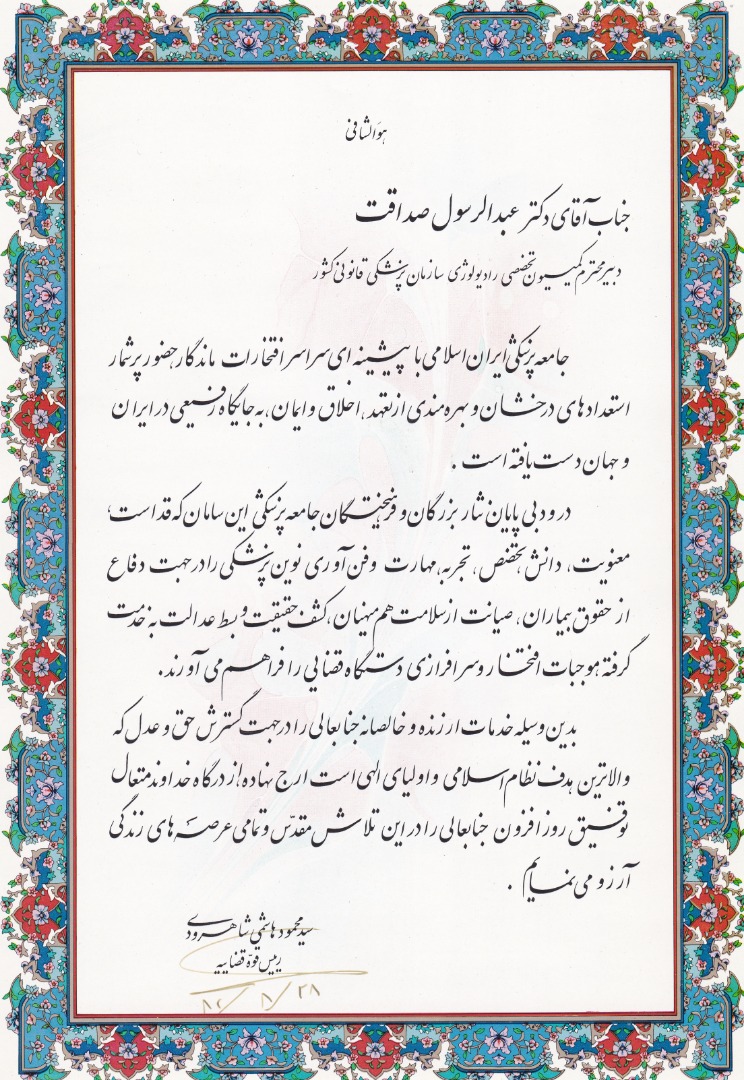 هوالشافی
جناب آقای دکتر عبدالرسول صداقت
دبیر محترم کمیسیون تخصصی رادیولوژی سازمان پزشکی قانونی کشور
جامعه پزشکی ایران اسلامی با پیشینه ای سراسر افتخارات ماندگار، حضور پرشمار
استعدادهای درخشان و بهره مندی از تعهد، اخلاق و ایمان، به جایگاه رفیعی در ایران
و جهان دست یافته است .
درود بی پایان نثار بزرگان و فرهیختگان جامعه پزشکی این سامان که قداست،
معنویت، دانش، تخصص، تجربه، مهارت و فن آوری نوین پزشکی را در جهت دفاع
از حقوق بیماران، صیانت از سلامت هم میهنان، کشف حقیقت و بسط عدالت به خدمت
گرفته موجبات افتخار و سرافرازی دستگاه قضایی را فراهم می آورند.
بدین وسیله خدمات ارزنده و خالصانه جنابعالی را در جهت گسترش حق و عدل که
والاترین هدف نظام اسلامی و اولیای الهی است ارج نهاده، از درگاه خداوند متعال
توفیق روز افزون جنابعالی را در این تلاش مقدّس و تمامی عرصه های زندگی
آرزو می نمایم .
سید محمود هاشمی شاهرودی
رئیس قوّه قضاییه
۸۲/۸/۲۸